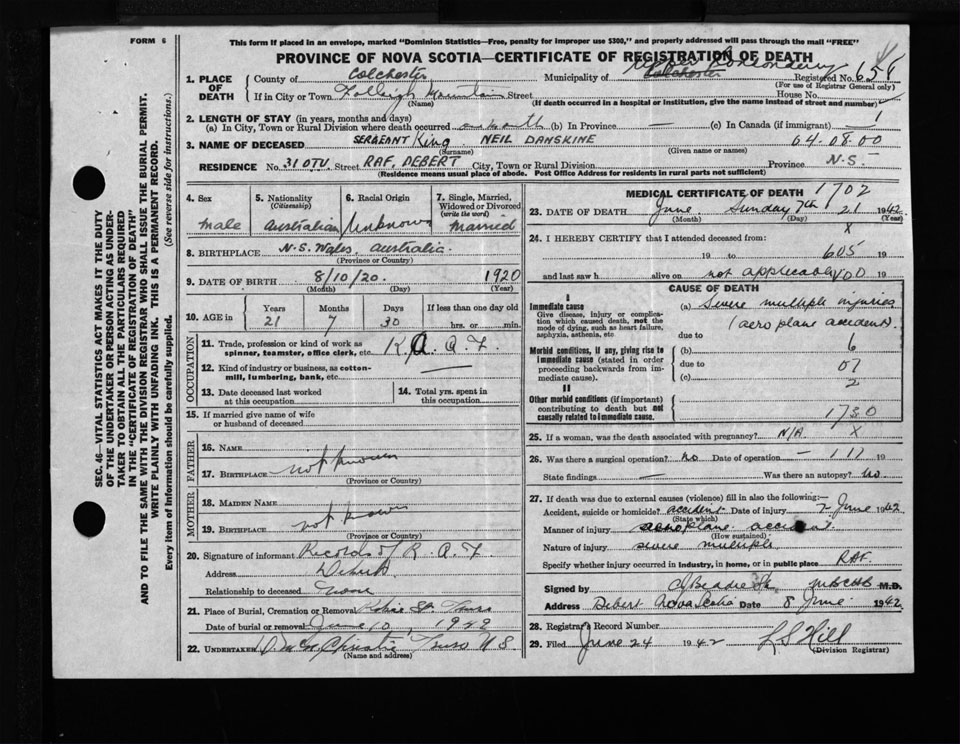 FORM 6
This form if placed in an envelope, marked "Dominion Statistics—Free, penalty for improper use $300," and properly addressed will pass through the mail "FREE"
PROVINCE OF NOVA SCOTIA—CERTIFICATE OF REGISTRATION OF DEATH
1. PLACE OF DEATH County of Colchester Municipality of Londonderry Colchester Registered No. 658
(For use of Registrar General only)
If in City or Town Folleigh Mountain Street House No.
(Name) (If death occurred in a hospital or institution, give the name instead of street and number)
2. LENGTH OF STAY (in years, months and days)
(a) In City, Town or Rural Division where death occurred one month (b) In Province — (c) In Canada (if immigrant) 1
3. NAME OF DECEASED SERGEANT King NEIL DANSKINE 64-08-00
(Surname) (Given name or names)
RESIDENCE No. 31 OTU Street RAF, DEBERT City, Town or Rural Division N.S.
(Residence means usual place of abode. Post Office Address for residents in rural parts not sufficient)
4. Sex
male
5. Nationality
(Citizenship)
Australian
6. Racial Origin
Unknown
7. Single, Married, Widowed or Divorced
(write the word)
Married
8. BIRTHPLACE N.S. Wales, Australia.
(Province or Country)
9. DATE OF BIRTH 8/10/20 1920
(Month) (Day) (Year)
10. AGE in Years Months Days If less than one day old
21 7 30 hrs. or min.
OCCUPATION
11. Trade, profession or kind of work as spinner, teamster, office clerk, etc. R. A. A. F.
12. Kind of industry or business, as cotton-mill, lumbering, bank, etc. —
13. Date deceased last worked at this occupation
14. Total yrs. spent in this occupation
15. If married give name of wife or husband of deceased
FATHER
16. NAME
17. BIRTHPLACE not known
(Province or Country)
MOTHER
18. MAIDEN NAME
19. BIRTHPLACE not known
(Province or Country)
20. Signature of informant Records of R. A. F.
Address Debert
Relationship to deceased none
21. Place of Burial, Cremation or Removal Truro
Date of burial or removal June 10, 1942
22. UNDERTAKER Christie Truro N S
(Name and address)
MEDICAL CERTIFICATE OF DEATH 1702
23. DATE OF DEATH June Sunday 7th 21 1942
(Month) (Day) (Year)
X
24. I HEREBY CERTIFY that I attended deceased from:
19 to 605 19
and last saw h alive on not applicable 100 19
CAUSE OF DEATH
I
Immediate cause
Give disease, injury or complication which caused death, not the mode of dying, such as heart failure, asphyxia, asthenia, etc
(a) Severe multiple injuries
(aeroplane accident).
due to
Morbid conditions, if any, giving rise to immediate cause (stated in order proceeding backwards from immediate cause).
(b) 6
due to 07
(c) 2
II
Other morbid conditions (if important) contributing to death but not causally related to immediate cause.
1730
25. If a woman, was the death associated with pregnancy? N/A X
26. Was there a surgical operation? no Date of operation — 117 19
State findings — Was there an autopsy? no
27. If death was due to external causes (violence) fill in also the following:—
Accident, suicide or homicide? accident Date of injury 7 June 1942
(State which)
Manner of injury aeroplane accident
(How sustained)
Nature of injury severe multiple
Specify whether injury occurred in industry, in home, or in public place RAF
Signed by M.B.CH.B. M.D.
Address Debert Nova Scotia Date 8 June 1942
28. Registrar's Record Number
29. Filed June 24 1942 L S Hill
(Division Registrar)
SEC. 46—VITAL STATISTICS ACT MAKES IT THE DUTY
OF THE UNDERTAKER OR PERSON ACTING AS UNDERTAKER TO OBTAIN ALL THE PARTICULARS REQUIRED
IN THE "CERTIFICATE OF REGISTRATION OF DEATH"
AND TO FILE THE SAME WITH THE DIVISION REGISTRAR WHO SHALL ISSUE THE BURIAL PERMIT.
WRITE PLAINLY WITH UNFADING INK. THIS IS A PERMANENT RECORD.
Every item of Information should be carefully supplied. (See reverse side for instructions.)